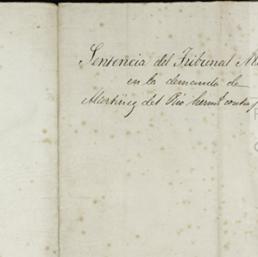 Sentencia del Tribunal M
en la demanda de
Martinez del Rio herm.s contra